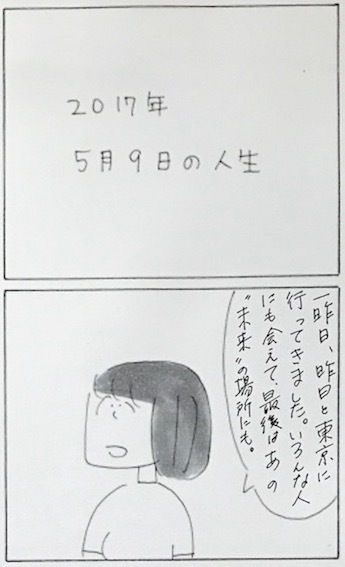 2017年
5月9日の人生
一昨日、昨日と東京に
行ってきました。いろんな人
にも会えて、最後はあの
"未来"の場所にも。